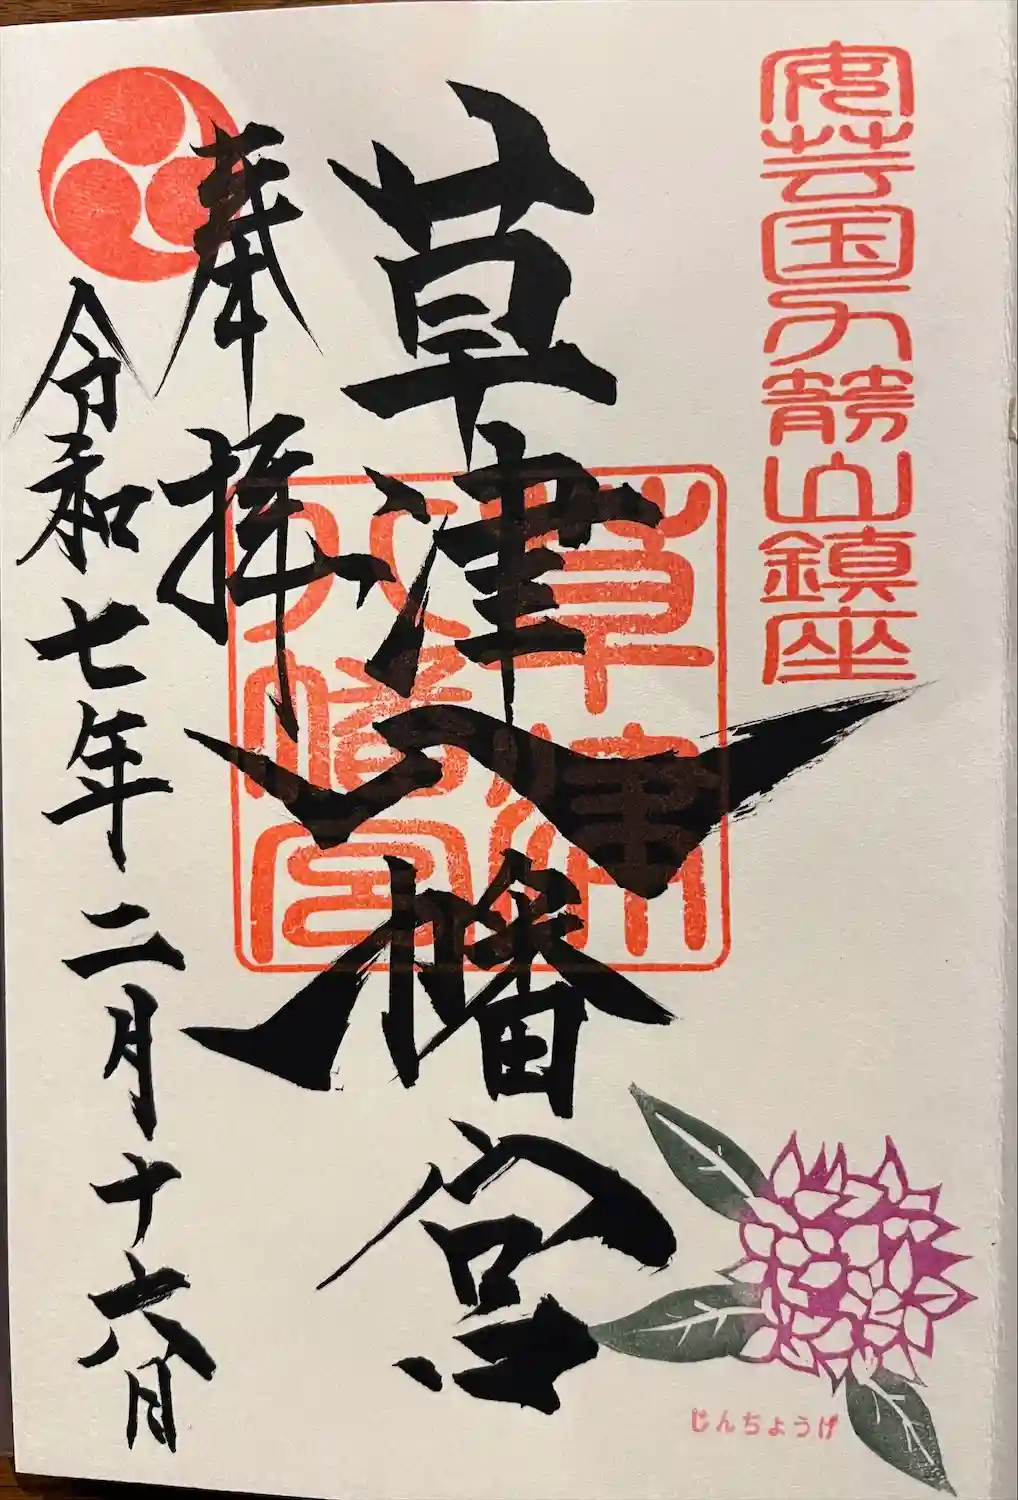 安芸国力箭山鎮座
草津八幡宮
草津
八幡宮
奉拝
令和七年二月十六日
じんちょうげ